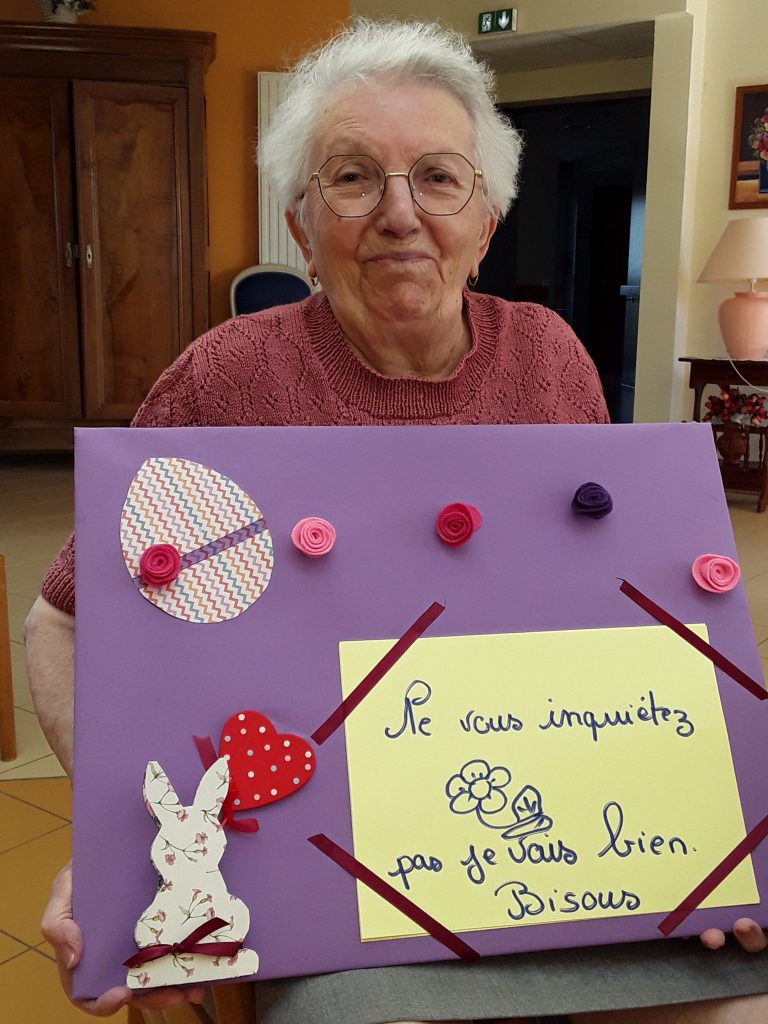 Ne vous inquiétez
pas je vais bien.
Bisous